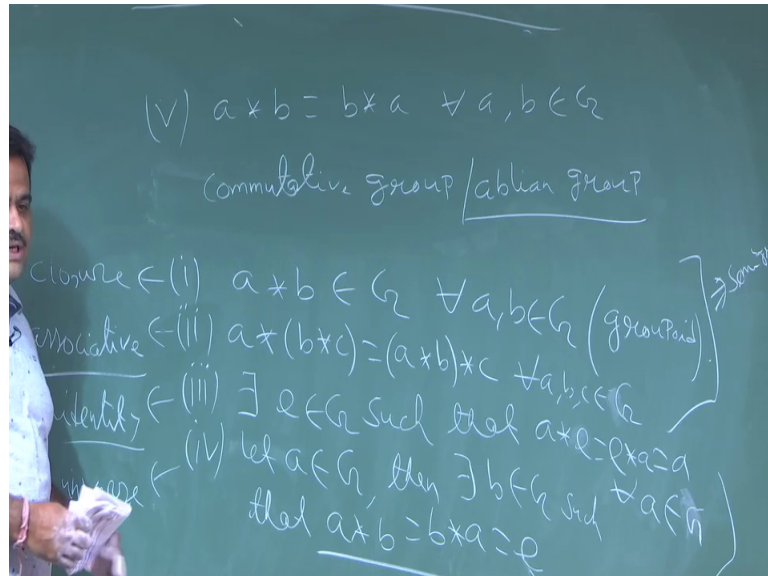 (v) a * b = b * a ∀ a, b ∈ G
Commutative group / ablian group
closure ← (i) a * b ∈ G ∀ a, b ∈ G (groupoid)
associative ← (ii) a * (b * c) = (a * b) * c ∀ a, b, c ∈ G
identity ← (iii) ∃ e ∈ G such that a * e = e * a = a
∀ a ∈ G
← (iv) let a ∈ G, then ∃ b ∈ G such
that a * b = b * a = e